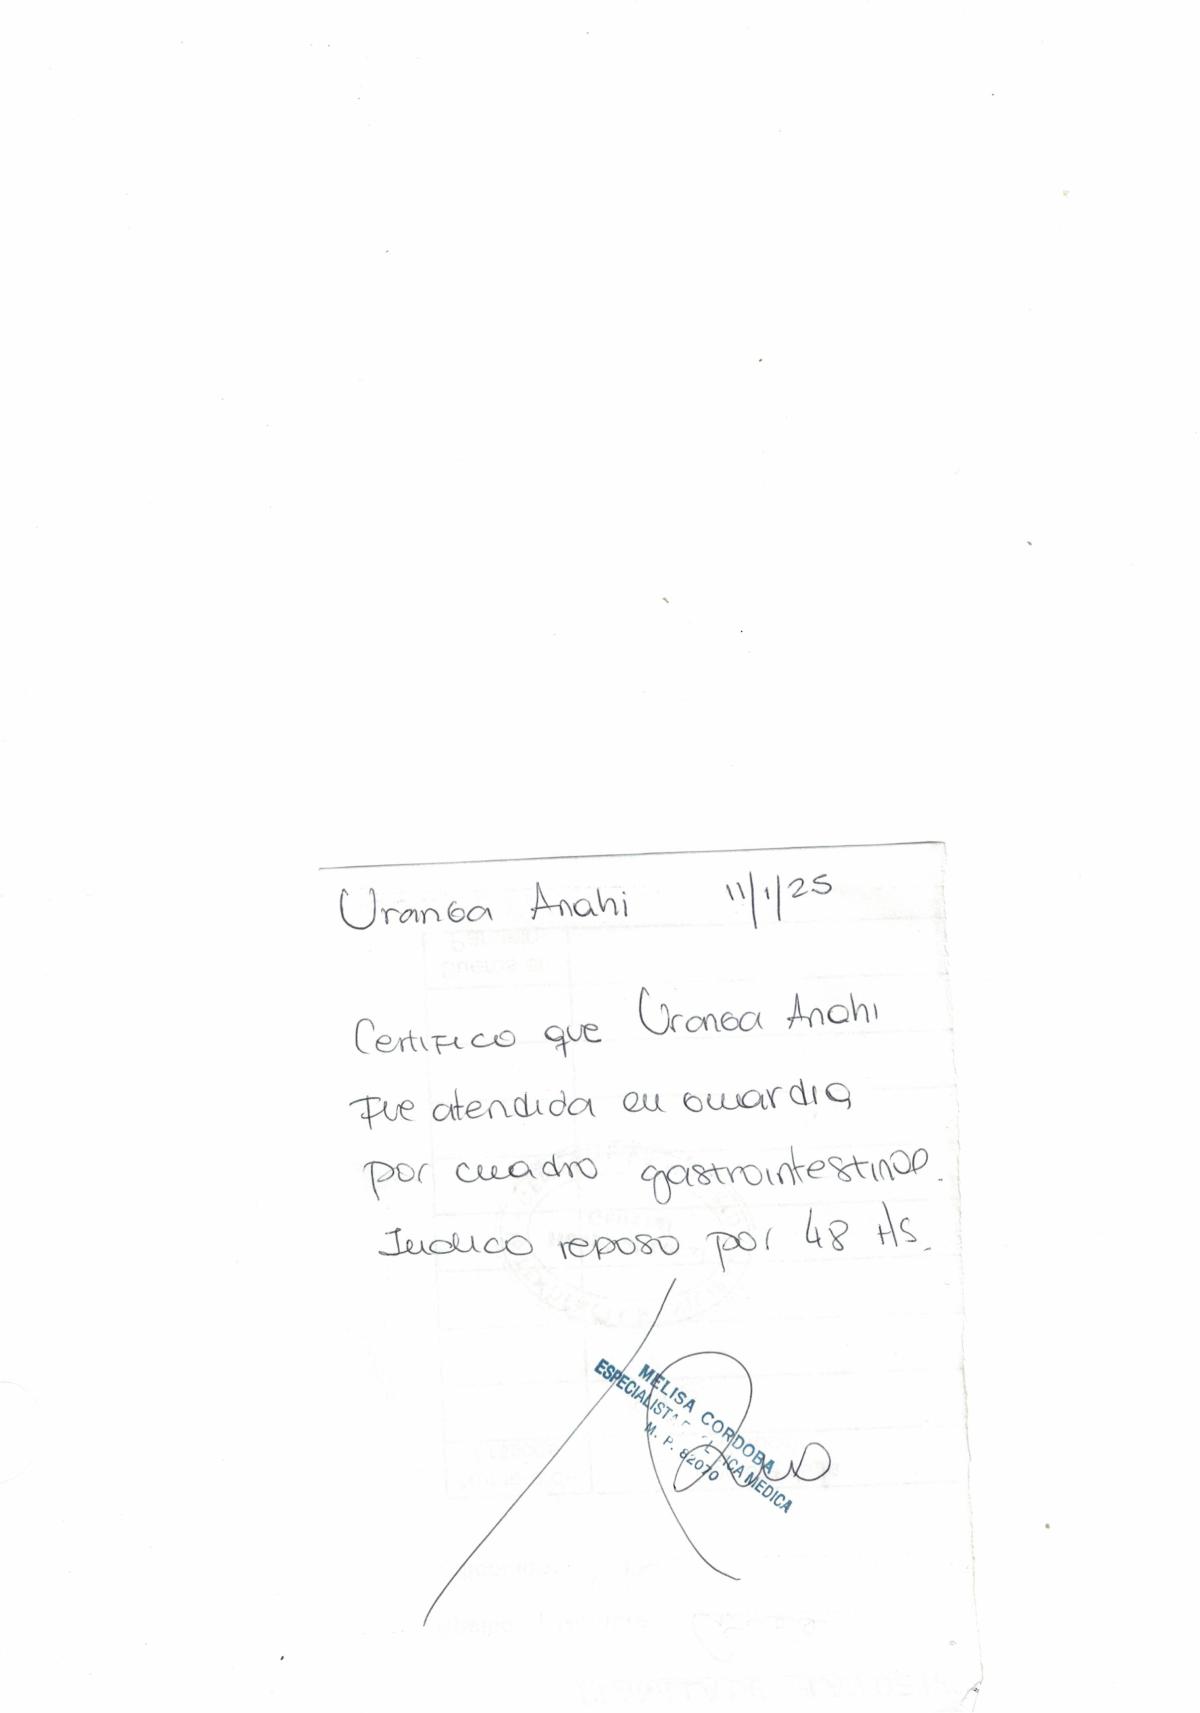 Uranga Anahi 11/1/25
Certifico que Uranga Anahi
Fue atendida en guardia
por cuadro gastrointestinal.
Indico reposo por 48 Hs.
MELISA CORDOBA
ESPECIALISTA
M. P. 82070